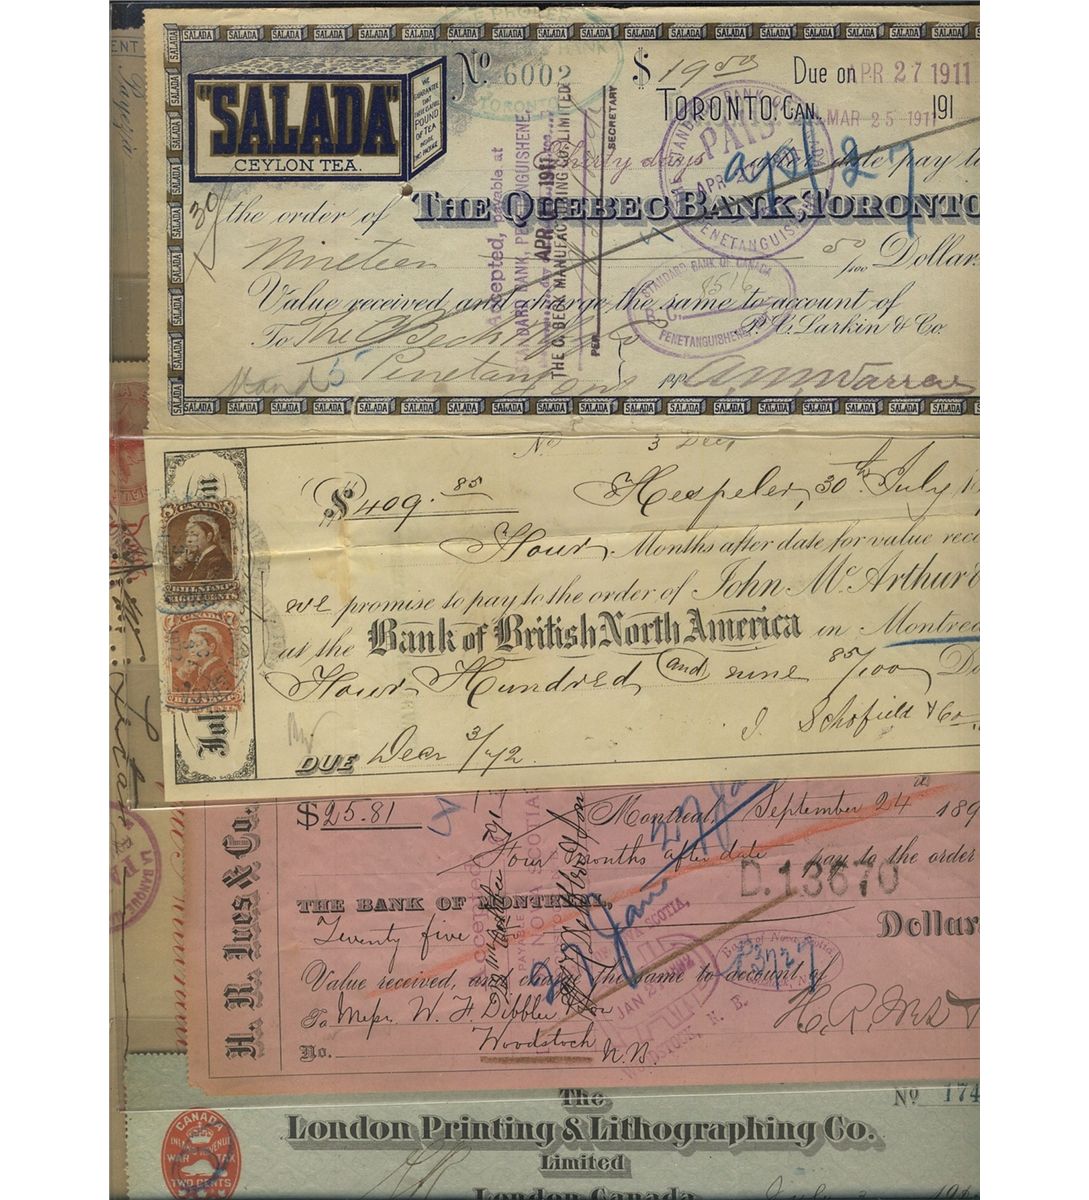 SALADA SALADA SALADA SALADA SALADA SALADA SALADA SALADA SALADA SALADA SALADA
"SALADA"
CEYLON TEA.
WE GUARANTEE THAT THIS CANS POUND OF TEA INSIDE THIS PACKAGE
No 6002
$ 19.50
Due on APR 27 1911
TORONTO, CAN., MAR 25 1911 191
TORONTO
Thirty days after date pay to
the order of THE QUEBEC BANK, TORONTO
Nineteen 50/100 Dollar
Value received and charge the same to account of
To The C Beck Mfg Co
P. C. Larkin & Co.
Penetang Ont
pp.
Accepted, payable at
STANDARD BANK, PENETANGUISHENE,
THE C. BECK MANUFACTURING CO. LIMITED
PER
SECRETARY
THE STANDARD BANK OF CANADA
PAID
PENETANGUISHENE
STANDARD BANK OF CANADA
B. C. 8516
PENETANGUISHENE, ONT
apl 27
30/
SALADA SALADA SALADA SALADA SALADA SALADA SALADA SALADA SALADA SALADA SALADA
No. 3 Decr
$409.85
Hespeler, 30th July
Four Months after date for value rece
we promise to pay to the order of John McArthur &
at the Bank of British North America in Montrea
Four Hundred and nine 85/100 Do
J Schofield & Co
DUE Decr 3/72
CANADA
BILL STAMP
EIGHT CENTS
CANADA
BILL STAMP
H. R. Ives & Co.
$25.81
Montreal, September 24th 189
Four Months after date pay to the order
D.13670
THE BANK OF MONTREAL,
Twenty five Dollar
Value received, and charge the same to account of
To Messrs W. F. Dibblee & Son
Woodstock N.B.
No.
H. R. Ives &
Accepted
PAYABLE
NOVA SCOTIA
27 Jan
JAN 27 1892
WOODSTOCK, N. B.
Bank of Nova Scotia
P3727
LA BANQUE
The
London Printing & Lithographing Co.
Limited
London Canada
No 174
CANADA
INLAND REVENUE
WAR TAX
TWO CENTS